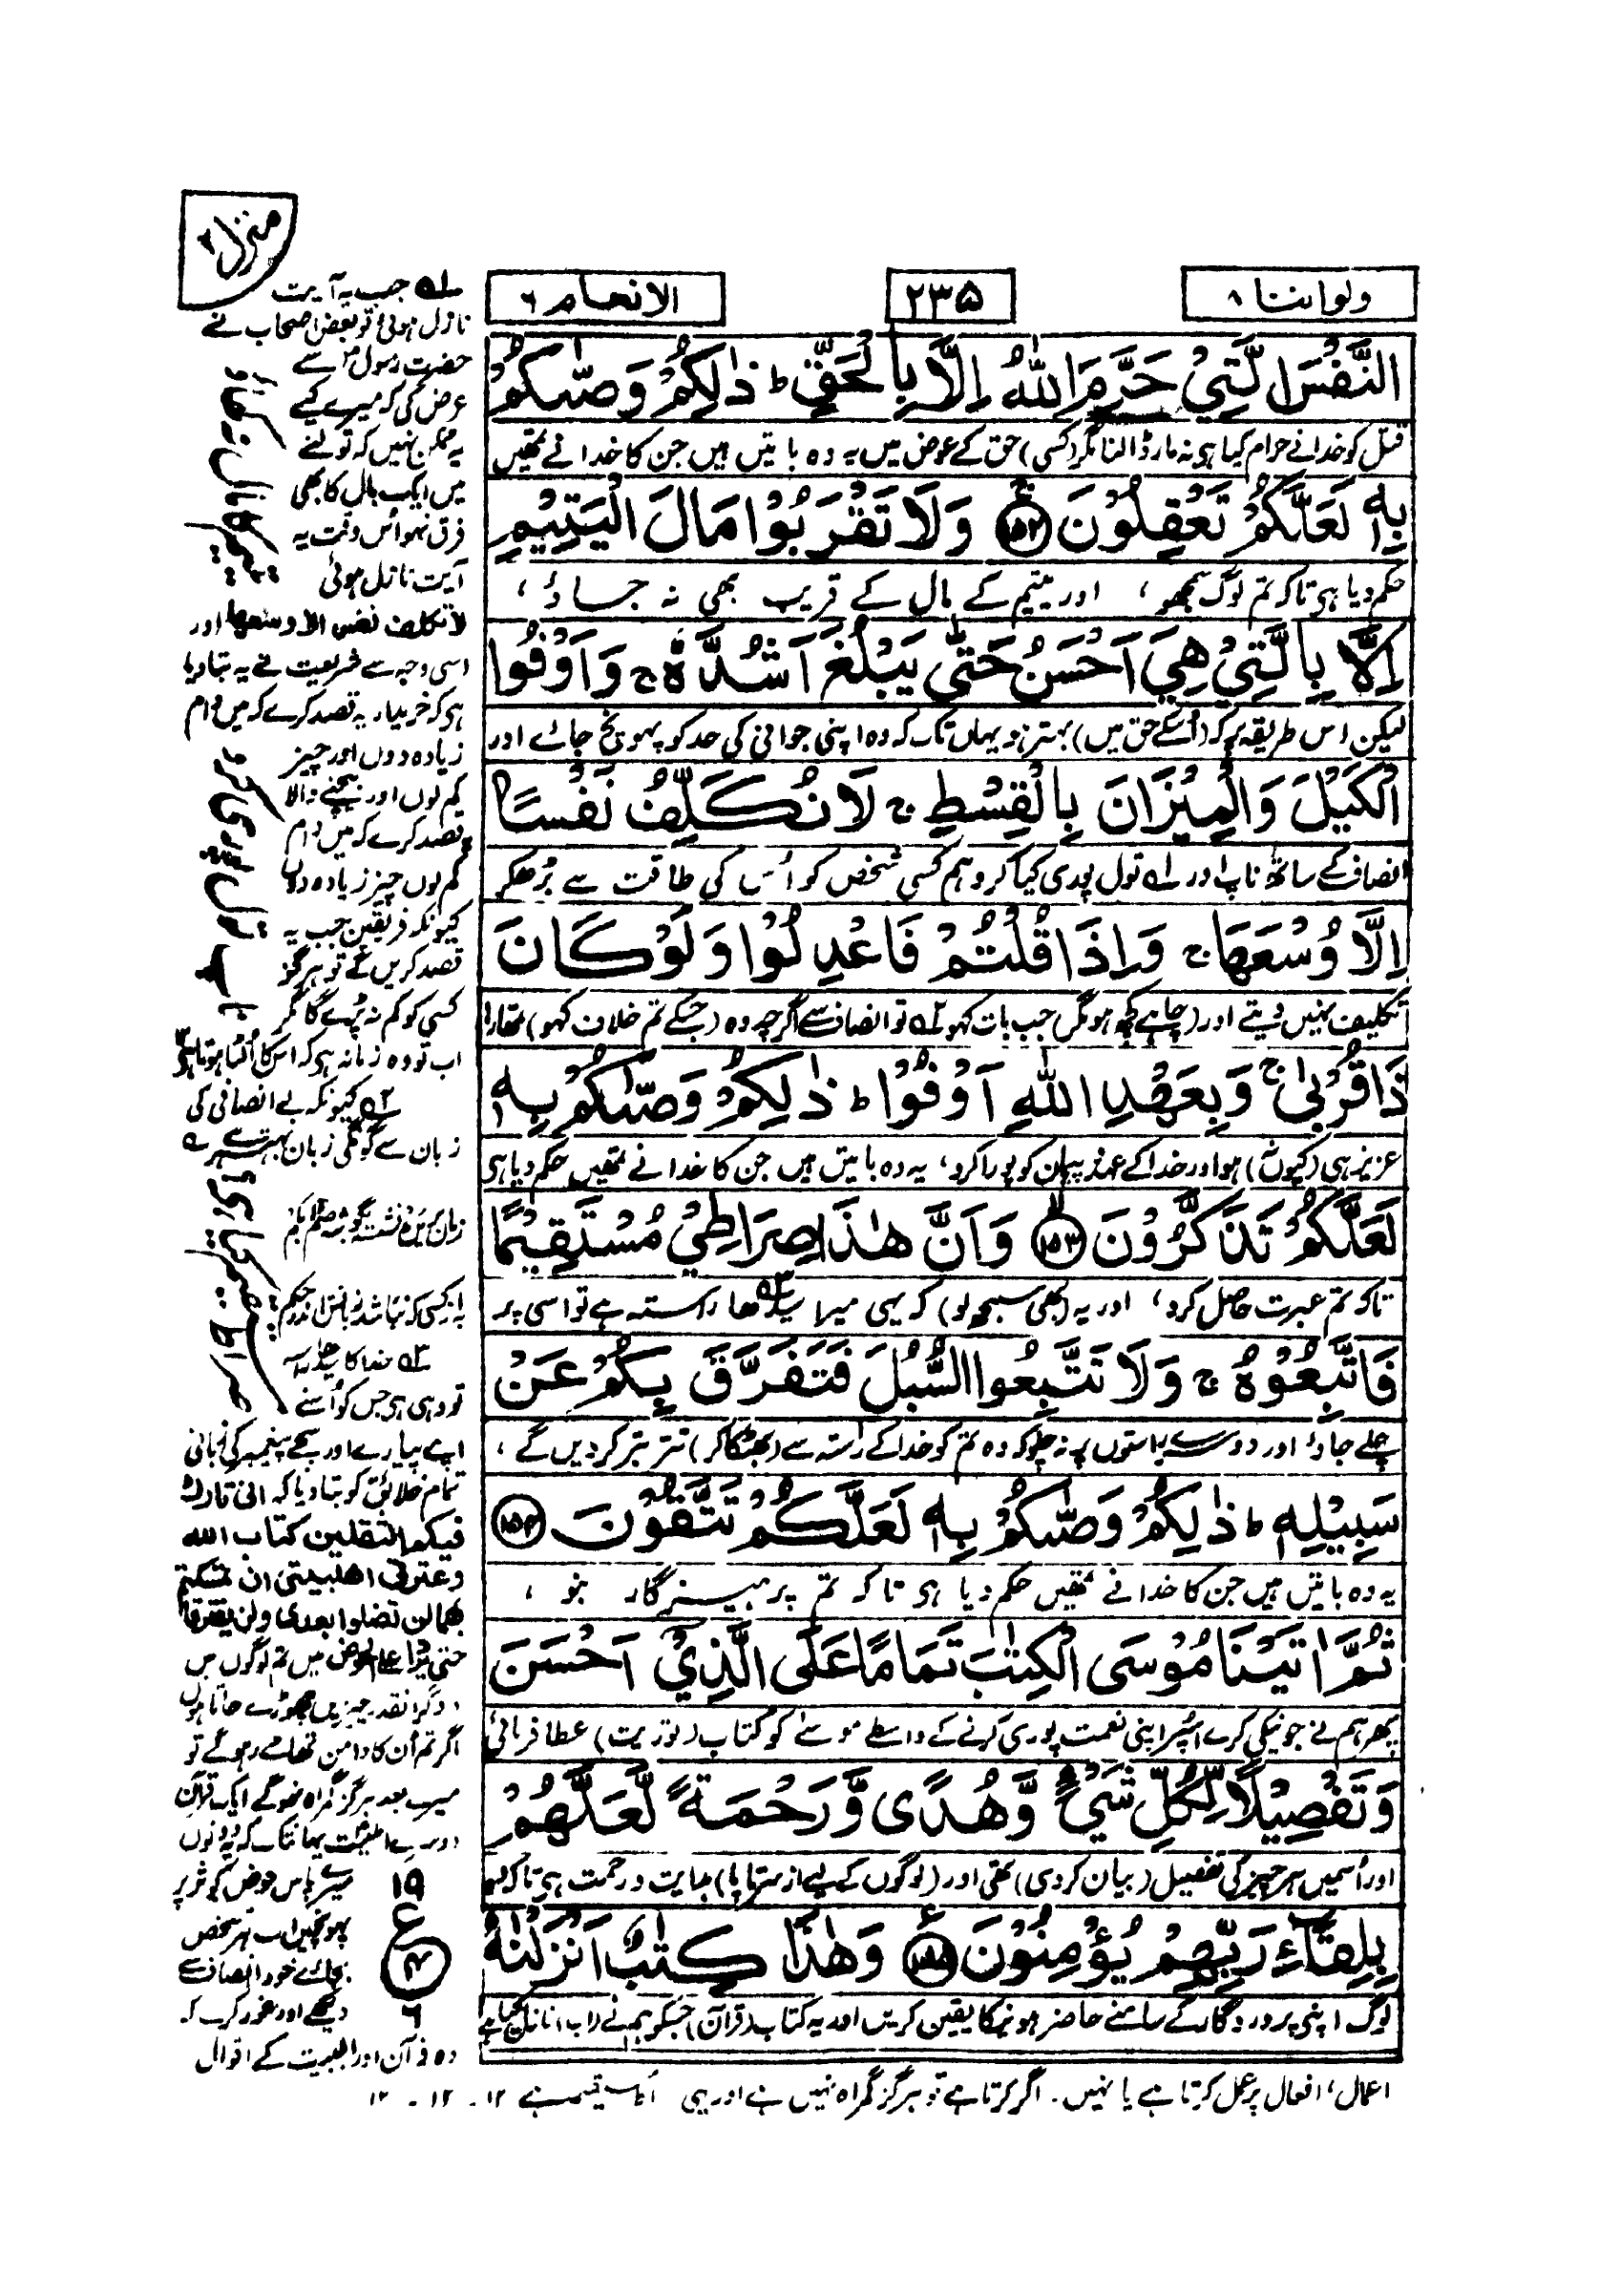 ولواننا ۸
۲۳۵
الانعام ۶
منزل ۲
النَّفْسَ الَّتِيْ حَرَّمَ اللّٰهُ اِلَّا بِالْحَقِّ ؕ ذٰلِكُمْ وَصّٰىكُمْ
قتل کو خدا نے حرام کیا ہی نہ مار ڈالنا مگر (کسی) حق کے عوض میں یہ وہ باتیں ہیں جن کا خدا نے تمھیں
بِهٖ لَعَلَّكُمْ تَعْقِلُوْنَ ﴿۱۵۲﴾ وَلَا تَقْرَبُوْا مَالَ الْيَتِيْمِ
حکم دیا ہی تاکہ تم لوگ سمجھو، اور یتیم کے مال کے قریب بھی نہ جاؤ،
اِلَّا بِالَّتِيْ هِيَ اَحْسَنُ حَتّٰى يَبْلُغَ اَشُدَّهٗ ۚ وَاَوْفُوا
لیکن اس طریقہ پر کہ (اُسکے حق میں) بہتر ہو یہاں تک کہ وہ اپنی جوانی کی حد کو پہونچ جائے اور
الْكَيْلَ وَالْمِيْزَانَ بِالْقِسْطِ ۚ لَا نُكَلِّفُ نَفْسًا
انصاف کے ساتھ ناپ اور ۱؎ تول پوری کیا کرو ہم کسی شخص کو اُس کی طاقت سے بڑھکر
اِلَّا وُسْعَهَا ۚ وَاِذَا قُلْتُمْ فَاعْدِلُوْا وَلَوْ كَانَ
تکلیف نہیں دیتے اور (چاہے کچھ ہو مگر) جب بات کہو ۲؎ تو انصاف سے اگرچہ وہ (جسکے تم خلاف کہو) تمھارا
ذَا قُرْبٰى ۚ وَبِعَهْدِ اللّٰهِ اَوْفُوْا ؕ ذٰلِكُمْ وَصّٰىكُمْ بِهٖ
عزیز ہی (کیوں نہ) ہو اور خدا کے عہد و پیمان کو پورا کرو، یہ وہ باتیں ہیں جن کا خدا نے تمھیں حکم دیا ہی
لَعَلَّكُمْ تَذَكَّرُوْنَ ﴿۱۵۳﴾ وَاَنَّ هٰذَا صِرَاطِيْ مُسْتَقِيْمًا
تاکہ تم عبرت حاصل کرو، اور یہ (بھی سمجھ لو) کہ یہی میرا سیدھا ۳؎ راستہ ہے تو اسی پر
فَاتَّبِعُوْهُ ۚ وَلَا تَتَّبِعُوا السُّبُلَ فَتَفَرَّقَ بِكُمْ عَنْ
چلے جاؤ اور دوسرے راستوں پر نہ چلو کہ وہ تم کو خدا کے راستہ سے (بھٹکا کر) تتر بتر کر دیں گے،
سَبِيْلِهٖ ؕ ذٰلِكُمْ وَصّٰىكُمْ بِهٖ لَعَلَّكُمْ تَتَّقُوْنَ ﴿۱۵۴﴾
یہ وہ باتیں ہیں جن کا خدا نے تمھیں حکم دیا ہی تاکہ تم پرہیزگار بنو،
ثُمَّ اٰتَيْنَا مُوْسَى الْكِتٰبَ تَمَامًا عَلَى الَّذِيْ اَحْسَنَ
پھر ہم نے جو نیکی کرے اُسپر اپنی نعمت پوری کرنے کے واسطے موسیٰ کو کتاب (توریت) عطا فرمائی
وَتَفْصِيْلًا لِّكُلِّ شَيْءٍ وَّهُدًى وَّرَحْمَةً لَّعَلَّهُمْ
اور اُسمیں ہر چیز کی تفصیل (بیان کر دی) تھی اور (لوگوں کے لیے از سرتاپا) ہدایت و رحمت ہی تاکہ
بِلِقَآءِ رَبِّهِمْ يُؤْمِنُوْنَ ﴿۱۵۵﴾ وَهٰذَا كِتٰبٌ اَنْزَلْنٰهُ
لوگ اپنی پروردگار کے سامنے حاضر ہونیکا یقین کریں اور یہ کتاب (قرآن) جسکو ہم نے (اب) نازل کیا ہے
۱؎ جب یہ آیت
نازل ہوئی تو بعض اصحاب نے
حضرت رسولؐ سے
عرض کی کہ میرے لیے
یہ ممکن نہیں کہ تولنے
میں ایک بال کا بھی
فرق نہو اُس وقت یہ
آیت نازل ہوئی
لا تکلف نفس الا وسعها اور
اسی وجہ سے شریعت نے یہ بتا دیا
ہی کہ خریدار یہ قصد کرے کہ میں دام
زیادہ دوں اور چیز
کم لوں اور بیچنے والا
قصد کرے کہ میں دام
کم لوں چیز زیادہ دوں
کیونکہ فریقین جب یہ
قصد کریں گے تو ہرگز
کسی کو کم نہ پڑے گا مگر
اب تو وہ زمانہ ہی کہ اس کا اُلٹا ہوتا ہی
۲؎ کیونکہ بے انصافی کی
زبان سے گونگی زبان بہتر ہے
۳؎ خدا کا سیدھا راستہ
تو وہی ہی جس کو اُسنے
اپنے پیارے اور سچے پیغمبر کی زبانی
تمام خلائق کو بتا دیا کہ انی تارک
فیکم الثقلین کتاب الله
وعترتی اهلبیتی ان تمسکتم
بهما لن تضلوا بعدی ولن یفترقا
حتی یردا علی الحوض میں تم لوگوں میں
دو گرانقدر چیزیں چھوڑے جاتا ہوں
اگر تم اُن کا دامن تھامے رہو گے تو
میرے بعد ہرگز گمراہ نہو گے ایک قرآن
دوسرے اہلبیت یہانتک کہ یہ دونوں
میرے پاس حوض کوثر پر
پہونچیں اب ہر شخص
بجائے خود انصاف سے
دیکھے اور غور کرے کہ
وہ قرآن اور اہلبیت کے اقوال
۱۹
ع
۶
اعمال، افعال پر عمل کرتا ہے یا نہیں۔ اگر کرتا ہے تو ہرگز گمراہ نہیں ہے اور یہی ۱۲ - ۱۲ - ۱۲